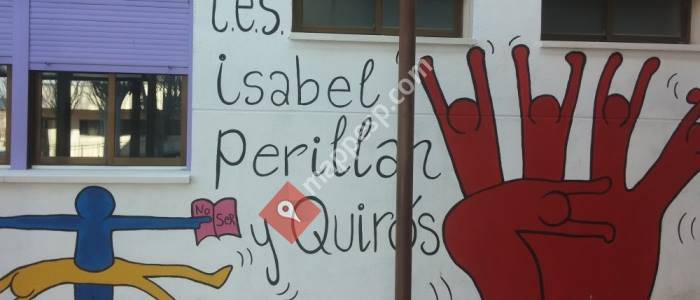 i.e.s.
isabel
Perillán
y Quirós
No
SER
mappesp.com